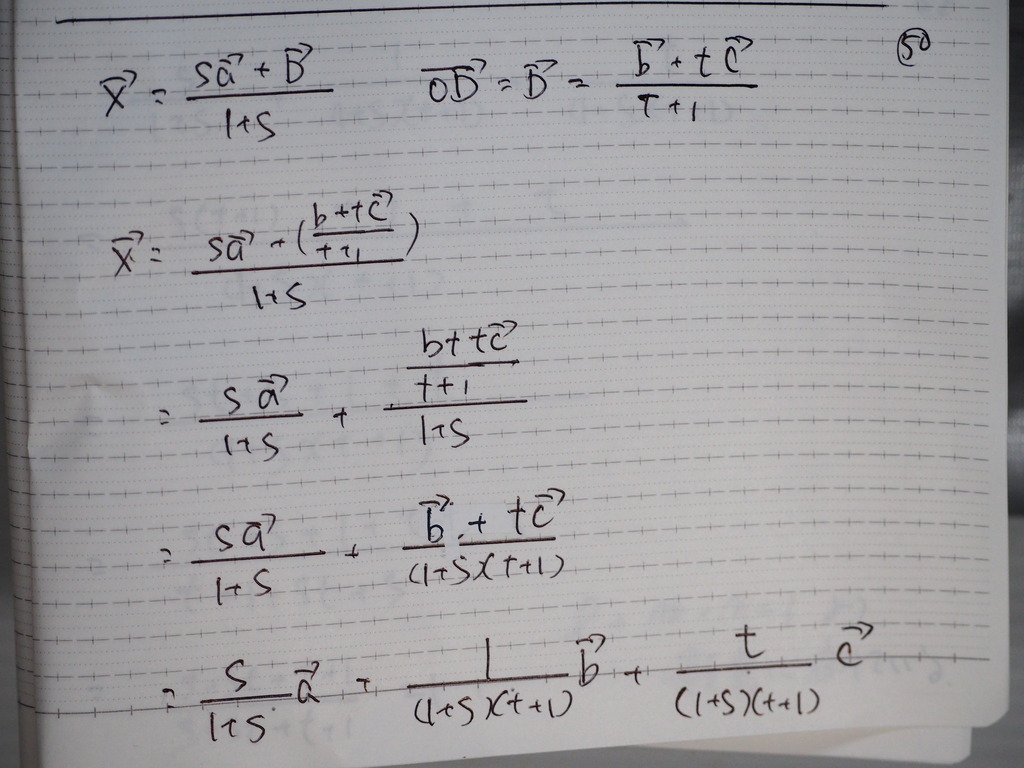 x⃗ = (sa⃗ + B⃗)/(1+s)   OD⃗ = D⃗ = (b⃗ + tc⃗)/(T+1)   ㊿
x⃗ = (sa⃗ + ((b+tc⃗)/(t+1)))/(1+s)
= (sa⃗)/(1+s) + ((b+tc⃗)/(t+1))/(1+s)
= (sa⃗)/(1+s) + (b⃗ + tc⃗)/((1+s)(t+1))
= s/(1+s) a⃗ + 1/((1+s)(t+1)) b⃗ + t/((1+s)(t+1)) c⃗